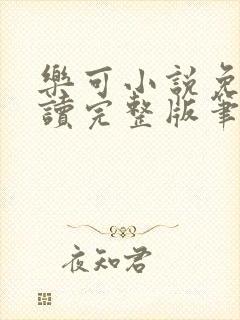 樂可小說免
讀完整版筆
夜知君